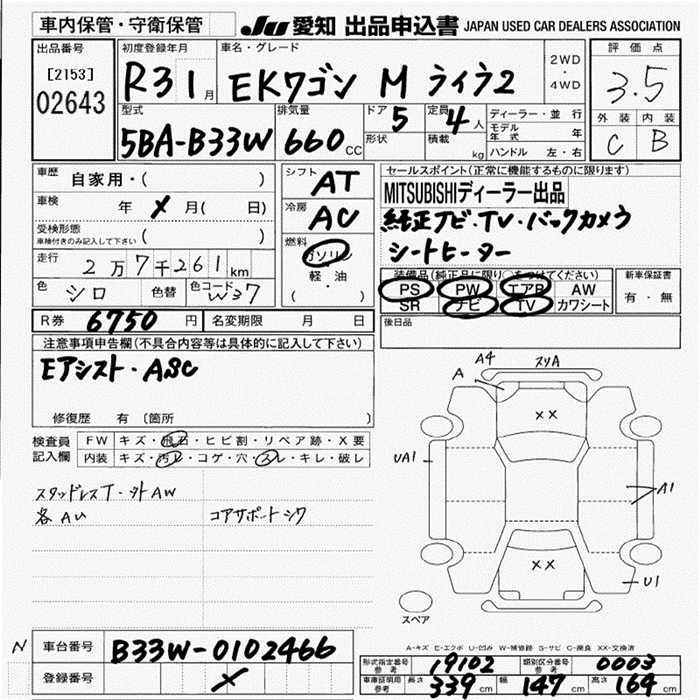 車内保管・守衛保管 JU 愛知 出品申込書 JAPAN USED CAR DEALERS ASSOCIATION
出品番号 初度登録年月 車名・グレード 評価点
[2153] R3 1月 EKワゴン M ライフ2 2WD・4WD 3.5
02643
型式 排気量 ドア 定員 ディーラー・並 行 外装 内装
5BA-B33W 660CC 5 4人 モデル年式 年 C B
形状 積載 kg ハンドル 左・右
車歴 自家用・( ) シフト AT セールスポイント(正常に機能するものに限ります)
車検 年 メ 月( 日) 冷房 AC MITSUBISHIディーラー出品
受検形態 車検付きのみ記入して下さい ( ) 燃料 ガソリン 純正ナビ・TV・バックカメラ
軽・油 シートヒーター
走行 2万7千261km ( )
色 シロ 色替 色コード W37
装備品(純正品に限り○をつけてください) 新車保証書
PS PW エアB AW 有・無
SR ナビ TV カワシート
R券 6750円 名変期限 月 日 後日品
注意事項申告欄(不具合内容等は具体的に記入して下さい)
Eアシスト・ASC
修復歴 有 (箇所
検査員記入欄 FW キズ・飛石・ヒビ割・リペア跡・X要
内装 キズ・汚レ・コゲ・穴・スレ・キレ・破レ
スタッドレスT・外AW
各AU コアサポートシワ
A4 スリA
A
XX
UA1
A1
XX
U1
スペア
A-キズ E-エクボ U-凹み W-補修跡 S-サビ C-腐食 XX-交換済
N 車台番号 B33W-0102466
登録番号 メ
形式指定番号 参考 19102 類別区分番号 参考 0003
車庫証明用 参考 長さ 339cm 幅 147cm 高さ 164cm